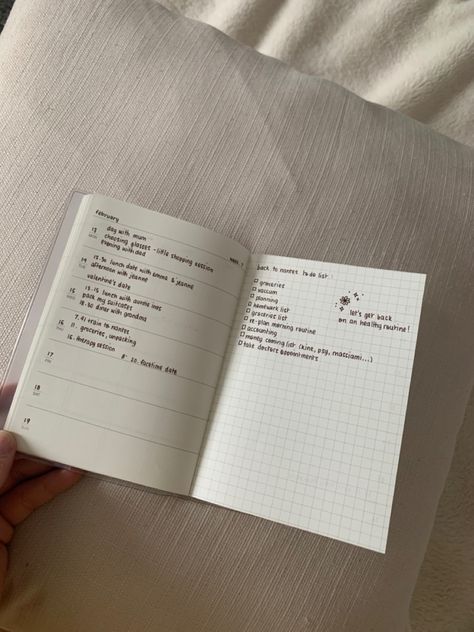 february
WEEK 7
13
MON
day with mum
choosing glasses - little shopping session
evening with dad
14
TUE
12.30 lunch date with emma & jeanne
afternoon with jeanne
valentine's date
15
WED
12.15 lunch with auntie
pack my suitcases
18.30 diner with grandma
16
THU
7.41 train to nantes
11. groceries, unpacking
16. therapy session
8.20. facetime date
17
FRI
18
SAT
19
SUN
back to nantes to do list :
groceries
vacuum
planning
homework list
groceries list
re-plan morning routine
accounting
money coming list (kine, psy, massiami...)
take doctors appointments
let's get back
on an healthy routine!